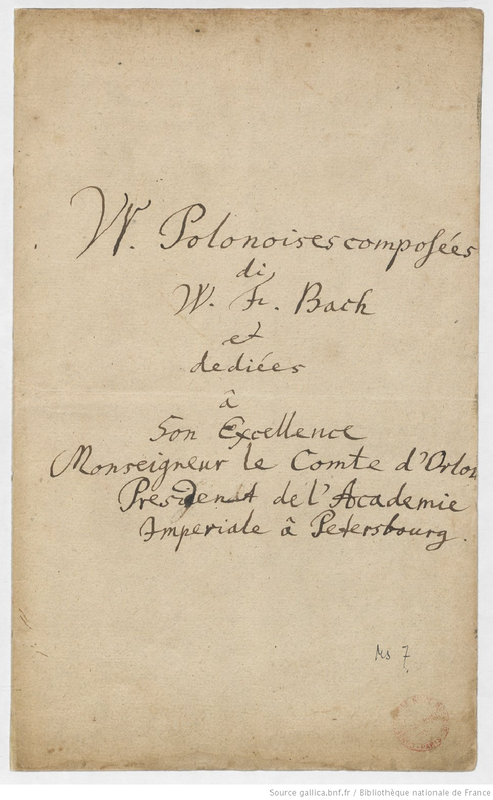 VI. Polonoises composées
di
W. Fr. Bach
et
dediées
â
Son Excellence
Monseigneur le Comte d'Orlow
President de l'Academie
Imperiale â Petersbourg.
Ms 7
Source gallica.bnf.fr / Bibliothèque nationale de France